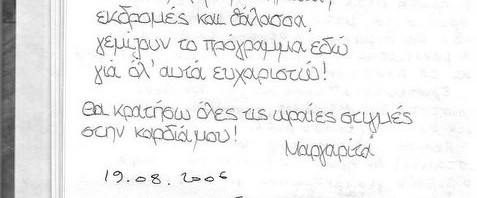 εκδρομές και θάλασσα,
γεμίζουν το πρόγραμμα εδώ
γιά όλ' αυτά ευχαριστώ!
Θα κρατήσω όλες τις ωραίες στιγμές
στην καρδιά μου!
Μαργαρίτα
19.08.2006